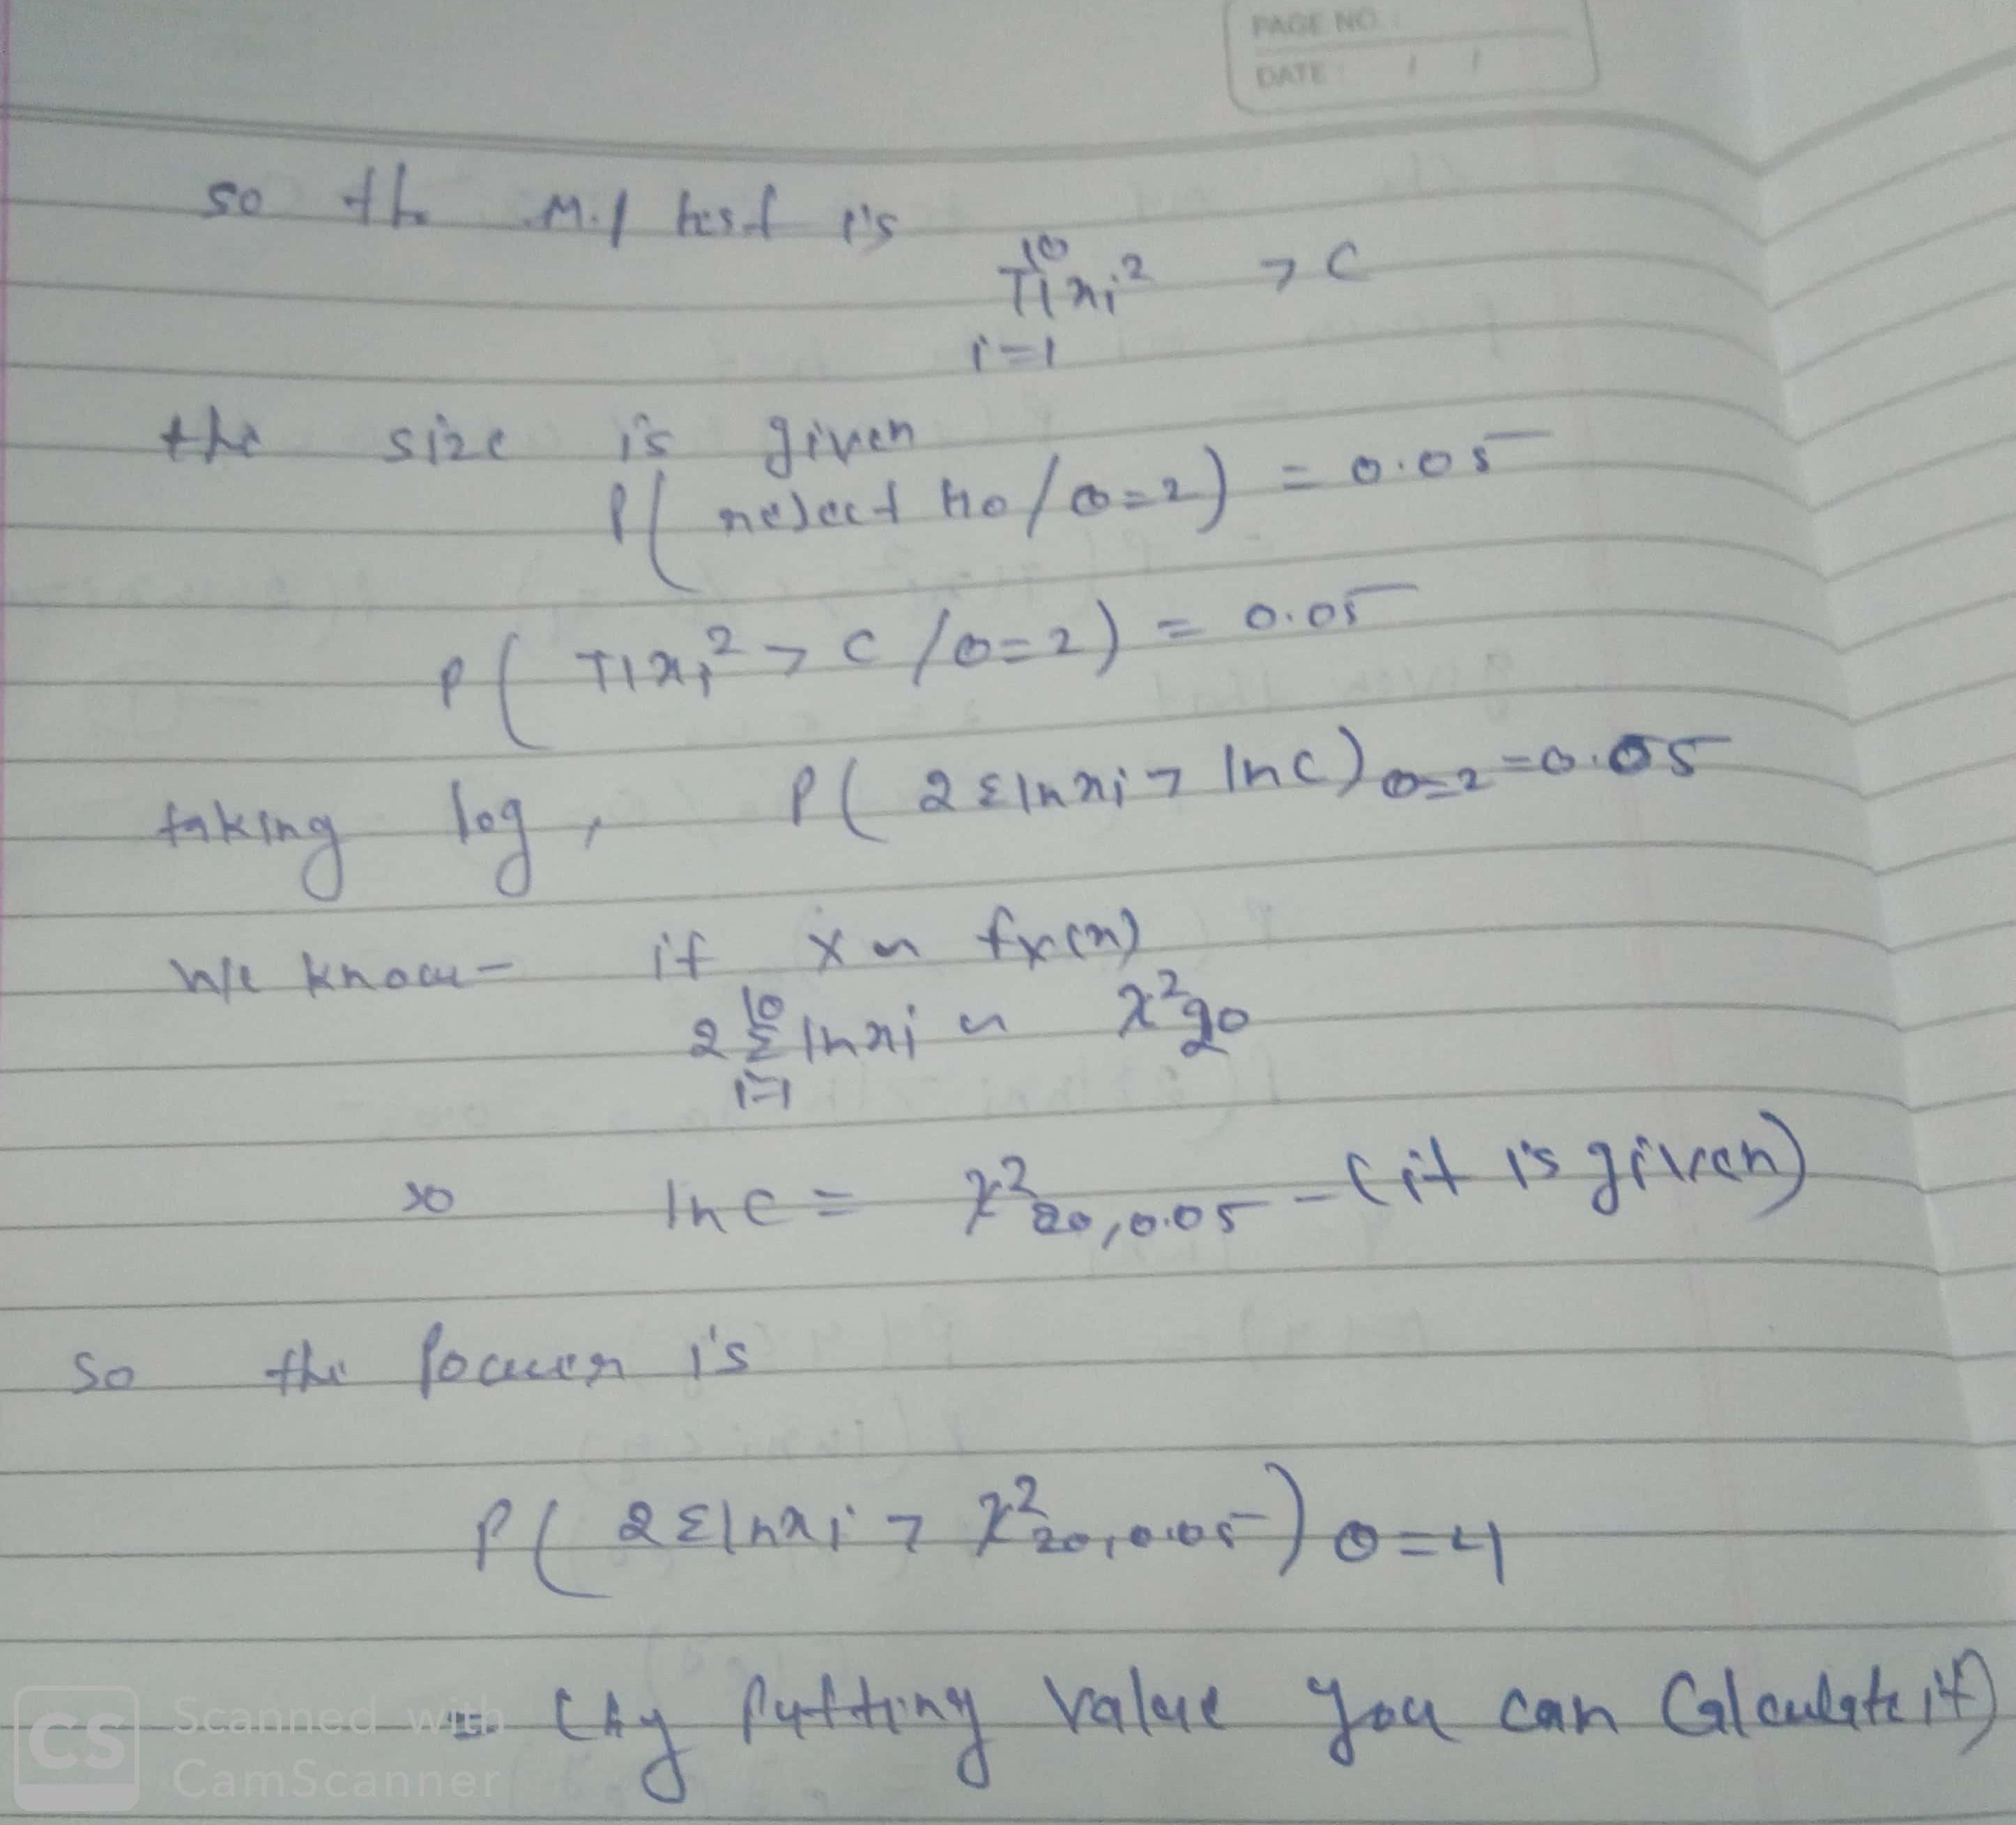 PAGE NO
DATE / /
so the M.P test is
10
πxi² > c
i=1
the size is given
P( reject H0 / θ=2 ) = 0.05
P( πxi² > c / θ=2 ) = 0.05
taking log, P( 2Σlnxi > lnc )θ=2 = 0.05
We know - if X ~ fx(x)
10
2Σlnxi ~ χ²20
i=1
so lnc = χ²20,0.05 - (it is given)
So the power is
P( 2Σlnxi > χ²20,0.05 ) θ=4
= (by putting value you can Calculate it)
CS Scanned with
CamScanner